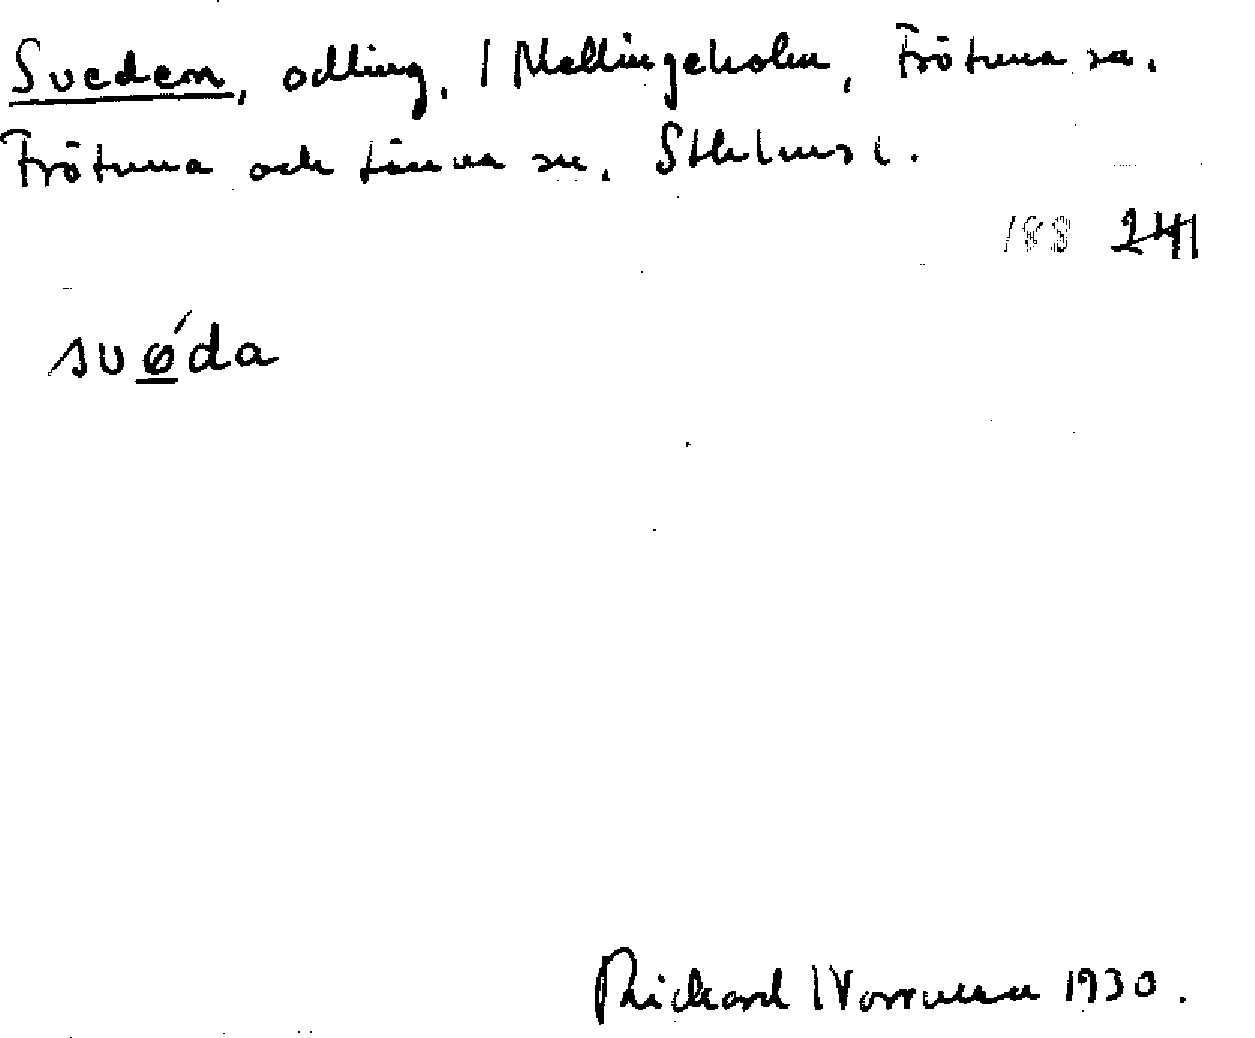 Sveden, odling, / Mellingeholm, Frötuna sn.
Frötuna och Länna sn. Sthlms l.
188 241
svǿda
Rickard Norrman 1930.